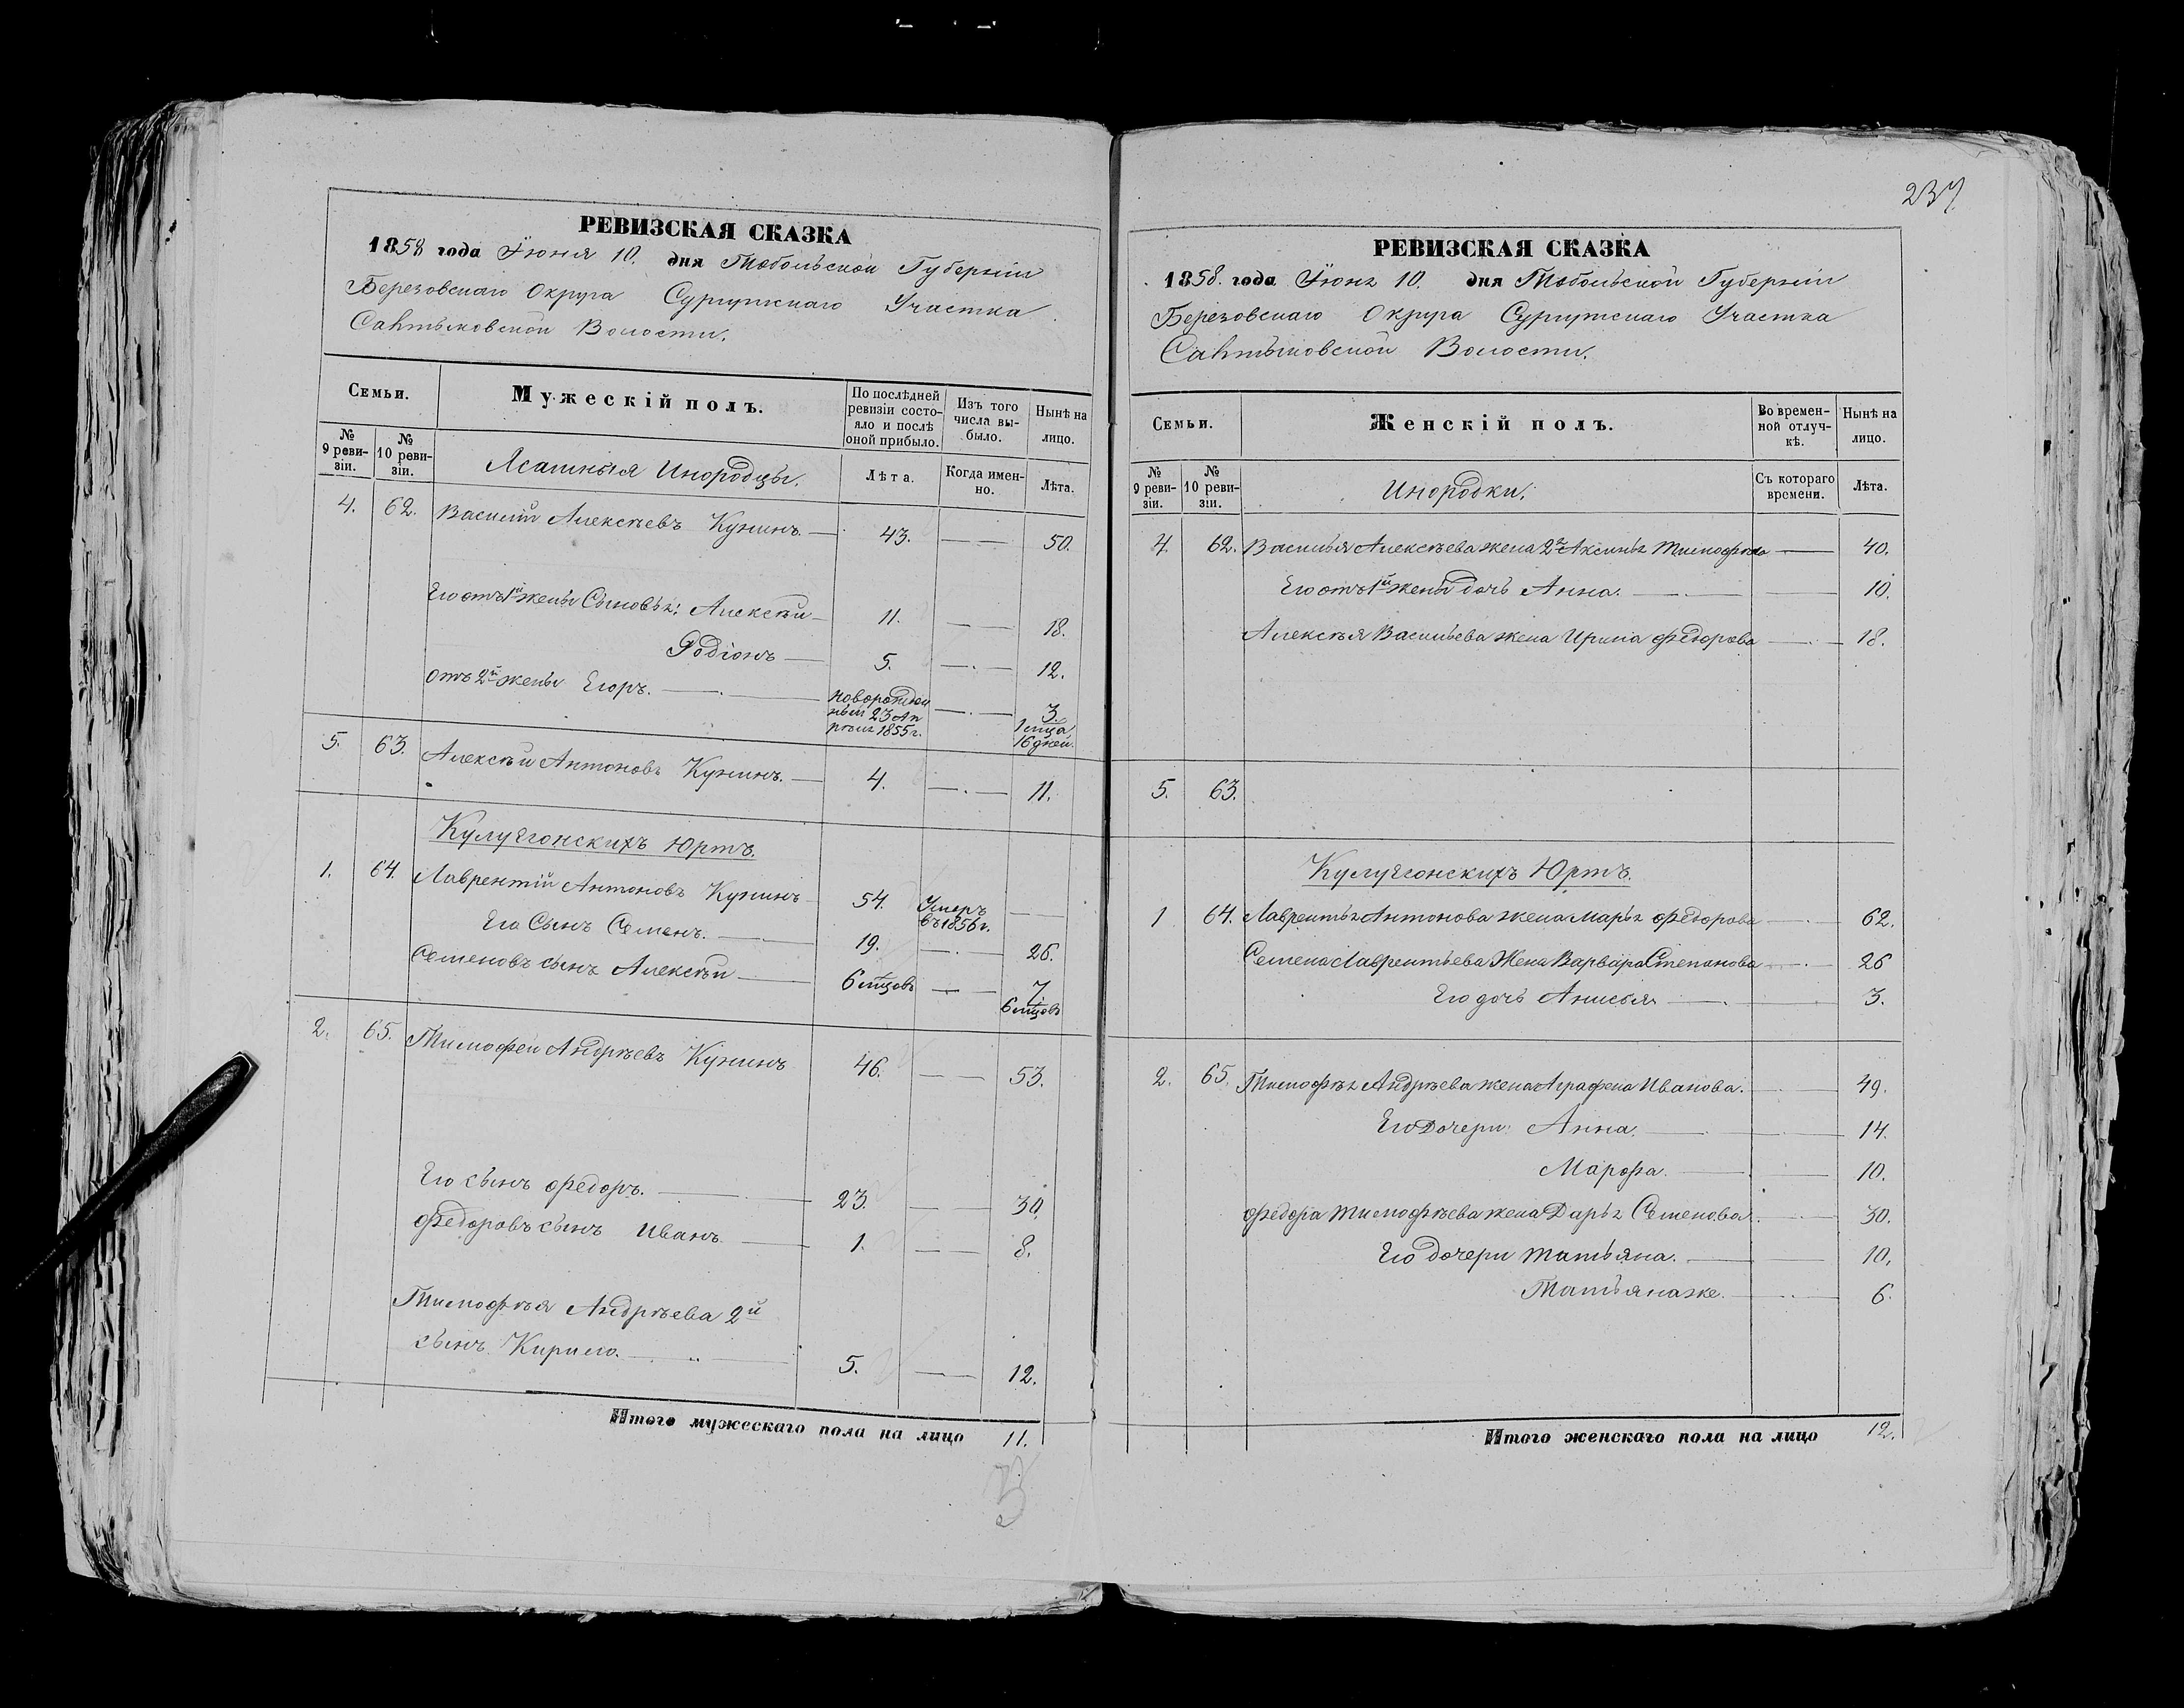 РЕВИЗСКАЯ СКАЗКА
1858 года Іюня 10. дня Тобольской Губерніи
Березовскаго Округа Сургутскаго Участка
Салтыковской Волости.
Семьи.
Мужескій полъ.
По послѣдней ревизіи состояло и послѣ оной прибыло.
Изъ того числа выбыло.
Нынѣ на лицо.
№ 9 ревизіи.
№ 10 ревизіи.
Ясашныя Инородцы.
Лѣта.
Когда именно.
Лѣта.
4. 62. Василій Алексѣевъ Кунинъ. — 43. — 50.
Его отъ 1й жены Сыновья: Алексѣй — 11. — 18.
Родіонъ — 5. — 12.
отъ 2й жены Егоръ. — новорожденный 23 Апрѣля 1855 г. — 3. 1 мца, 16 дней.
5. 63. Алексѣй Антоновъ Кунинъ. — 4. — 11.
Юртъ.
1. 64. Лаврентій Антоновъ Кунинъ 54. Умеръ въ 1856 г. —
Его Сынъ Семенъ. — 19. — 26.
Семеновъ сынъ Алексѣй — 6 мцовъ — 7. 6 мцовъ
2. 65. Тимофей Андрѣевъ Кунинъ 46. — 53.
Его сынъ Федоръ. — 23. — 30.
Федоровъ сынъ Иванъ — 1. — 8.
Тимофѣя Андрѣева 2й
сынъ Кирило. — 5. — 12.
Итого мужескаго пола на лицо 11.
3
237.
РЕВИЗСКАЯ СКАЗКА
1858. года Іюня 10. дня Тобольской Губерніи
Березовскаго Округа Сургутскаго Участка
Салтыковской Волости.
Семьи.
Женскій полъ.
Во временной отлучкѣ.
Нынѣ на лицо.
№ 9 ревизіи.
№ 10 ревизіи.
Инородки.
Съ котораго времени.
Лѣта.
4. 62. Василья Алексѣева жена 2я Аксинья Тимофѣева — 40.
Его отъ 1й жены дочь Анна. — 10.
Алексѣя Васильева жена Ирина Федорова — 18.
5. 63.
Юртъ.
1 64. Лаврентья Антонова жена Марья Федорова — 62.
Семена Лаврентьева Жена Варвара Степанова — 26
Его дочь Анисья — 3.
2. 65. Тимофѣя Андрѣева жена Аграфена Иванова. — 49.
Его Дочери: Анна. — 14.
Марфа. — 10.
Федора Тимофѣева жена Дарья Семенова. — 30.
Его дочери Татьяна. — 10.
Татьяна же. — 6.
Итого женскаго пола на лицо 12.